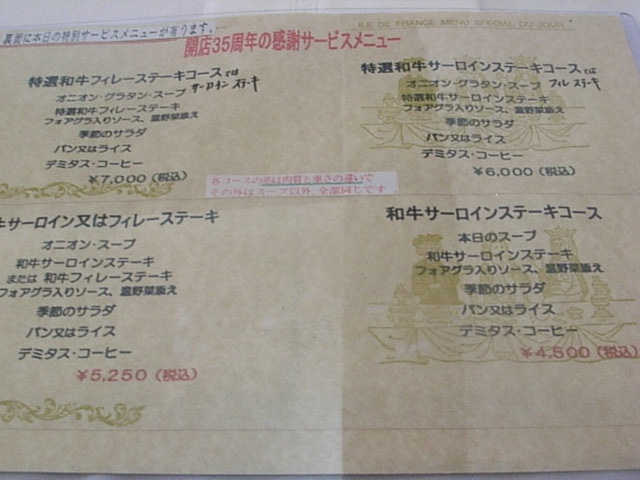 裏面に本日の特別サービスメニューが有ります。
ILE DE FRANCE MENU SPECIAL DU JOUR
開店35周年の感謝サービスメニュー
特選和牛フィレーステーキコース
サーロインステーキ
オニオン・グラタン・スープ
特選和牛フィレーステーキ
フォアグラ入りソース、温野菜添え
季節のサラダ
パン又はライス
デミタス・コーヒー
¥7,000(税込)
特選和牛サーロインステーキコース
フィレステーキ
オニオン・グラタン・スープ
特選和牛サーロインステーキ
フォアグラ入りソース、温野菜添え
季節のサラダ
パン又はライス
デミタス・コーヒー
¥6,000(税込)
各コースの差は肉質と重さの違いで
その外はスープ以外、全部同じです。
和牛サーロイン又はフィレーステーキ
オニオン・スープ
和牛サーロインステーキ
または 和牛フィレーステーキ
フォアグラ入りソース、温野菜添え
季節のサラダ
パン又はライス
デミタス・コーヒー
¥5,250(税込)
和牛サーロインステーキコース
本日のスープ
和牛サーロインステーキ
フォアグラ入りソース、温野菜添え
季節のサラダ
パン又はライス
デミタス・コーヒー
¥4,500(税込)